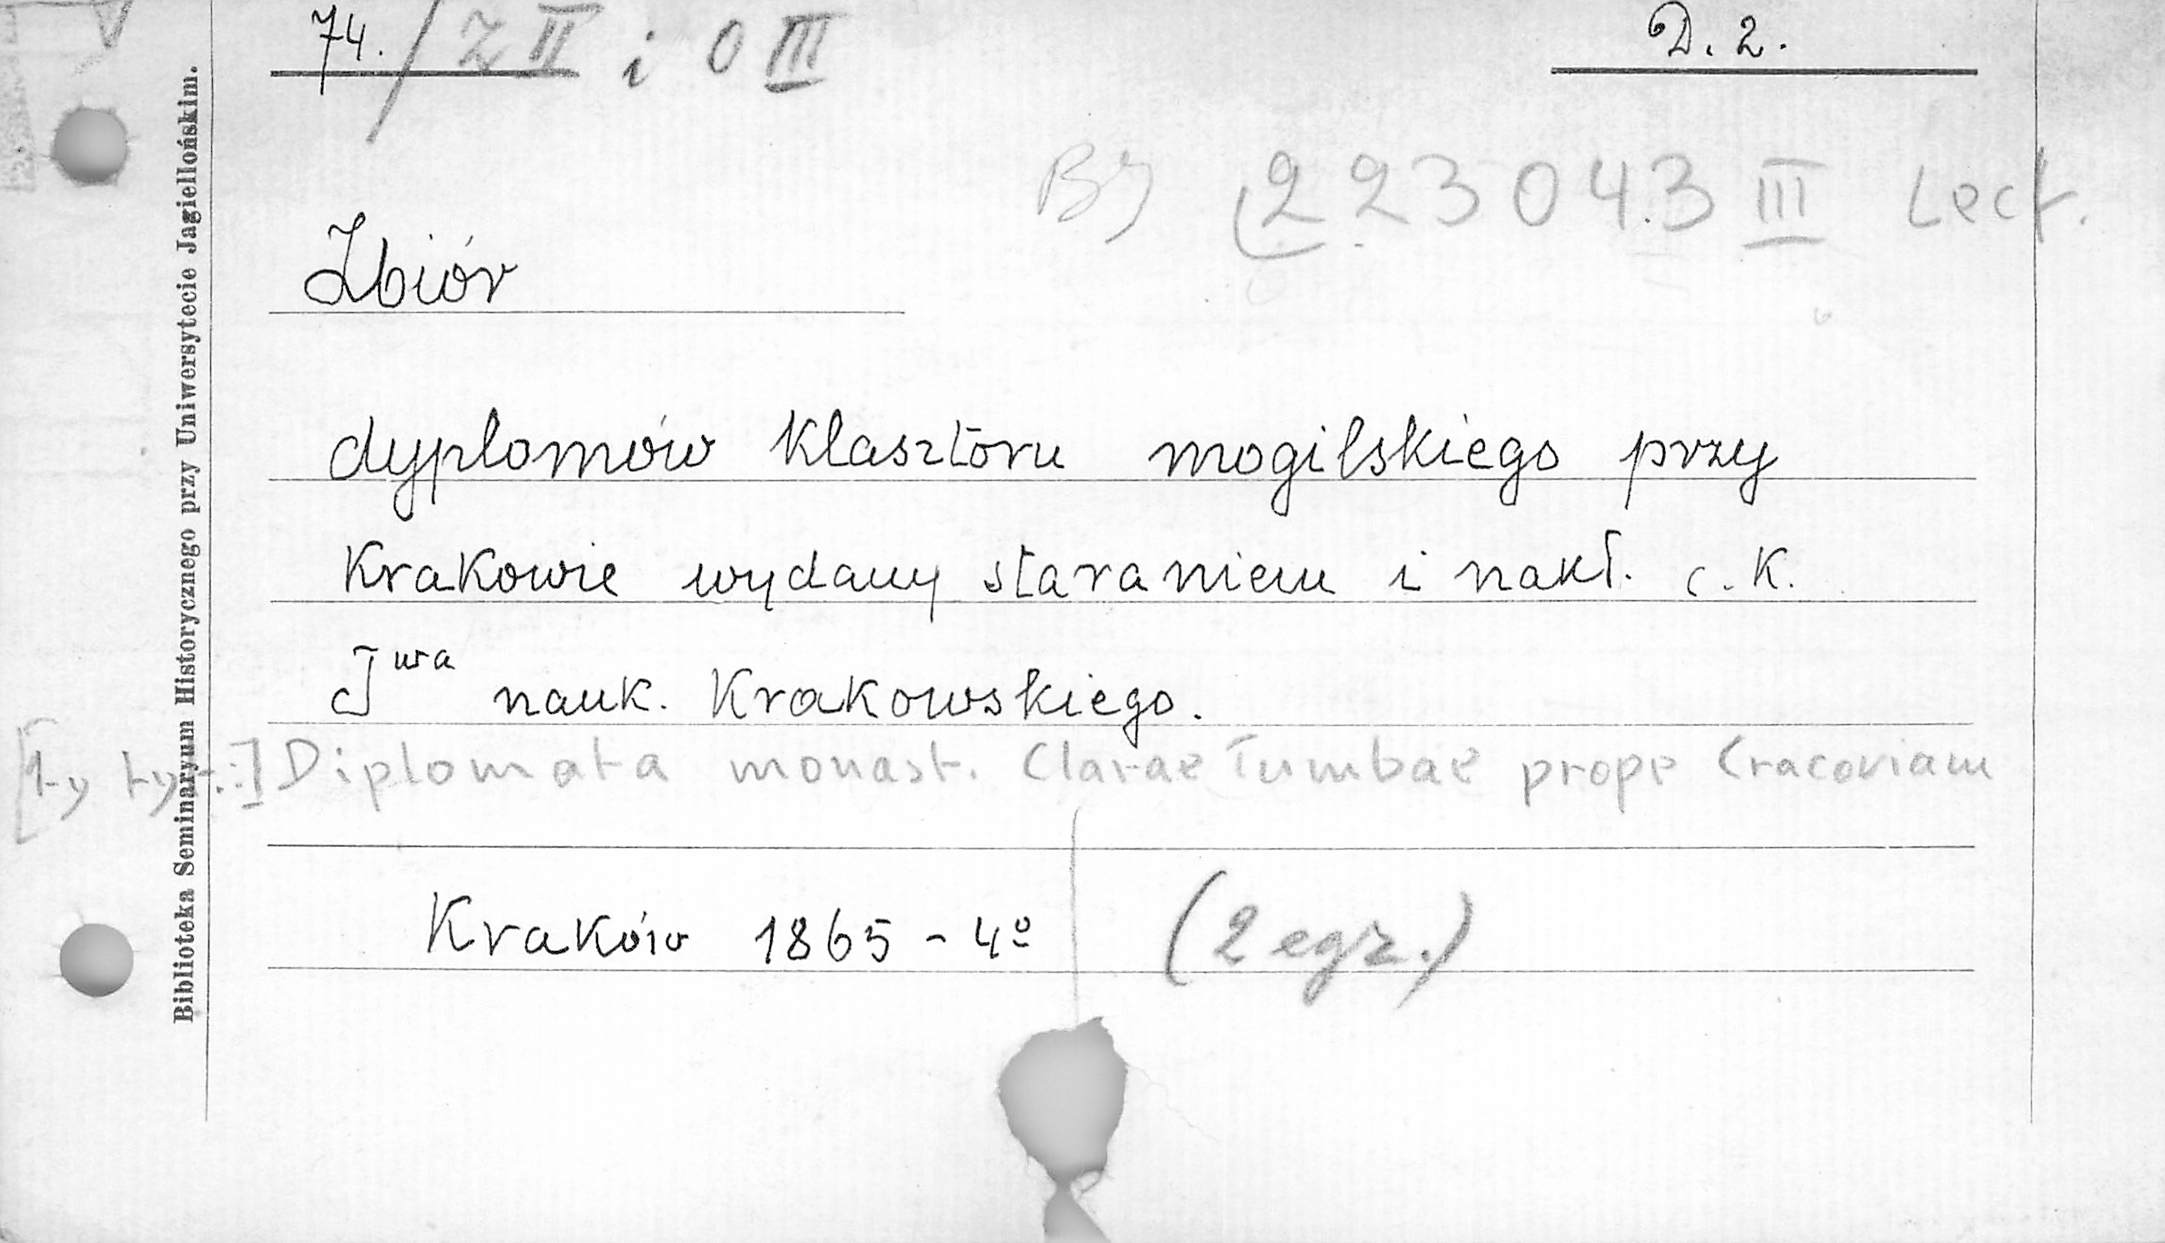 74. / Z II i O III
D. 2.
BJ 223043 III Lect.
Zbiór
dyplomów klasztoru mogilskiego przy
Krakowie wydany staraniem i nakł. c. K.
Twa nauk. Krakowskiego.
[1-y tyt.:] Diplomata monast. Clarae Tumbae prope Cracoviam
Kraków 1865 - 4º (2 egz.)
Biblioteka Seminaryum Historycznego przy Uniwersytecie Jagiellońskim.